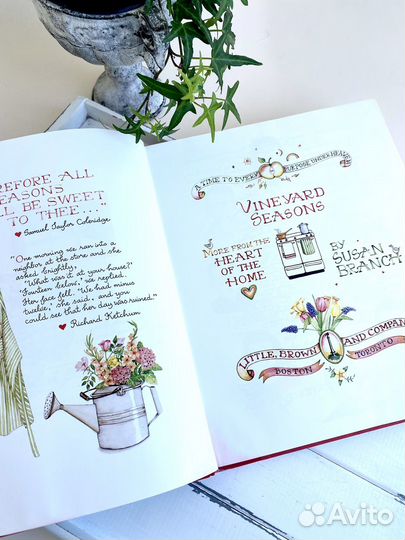 REFORE ALL
EASONS
LL BE SWEET
TO THEE..."
Samuel Taylor Coleridge
"One morning we ran into a
neighbor at the store and she
asked brightly,
"What was it at your house?"
"Fourteen below," we replied.
Her face fell. "We had minus
twelve," she said, and you
could see that her day was ruined."
Richard Ketchum
A TIME TO EVERY PURPOSE UNDER HEAVEN
VINEYARD
SEASONS
MORE FROM THE
HEART OF THE
HOME
BY
SUSAN
BRANCH
LITTLE, BROWN AND COMPANY
BOSTON TORONTO
Avito